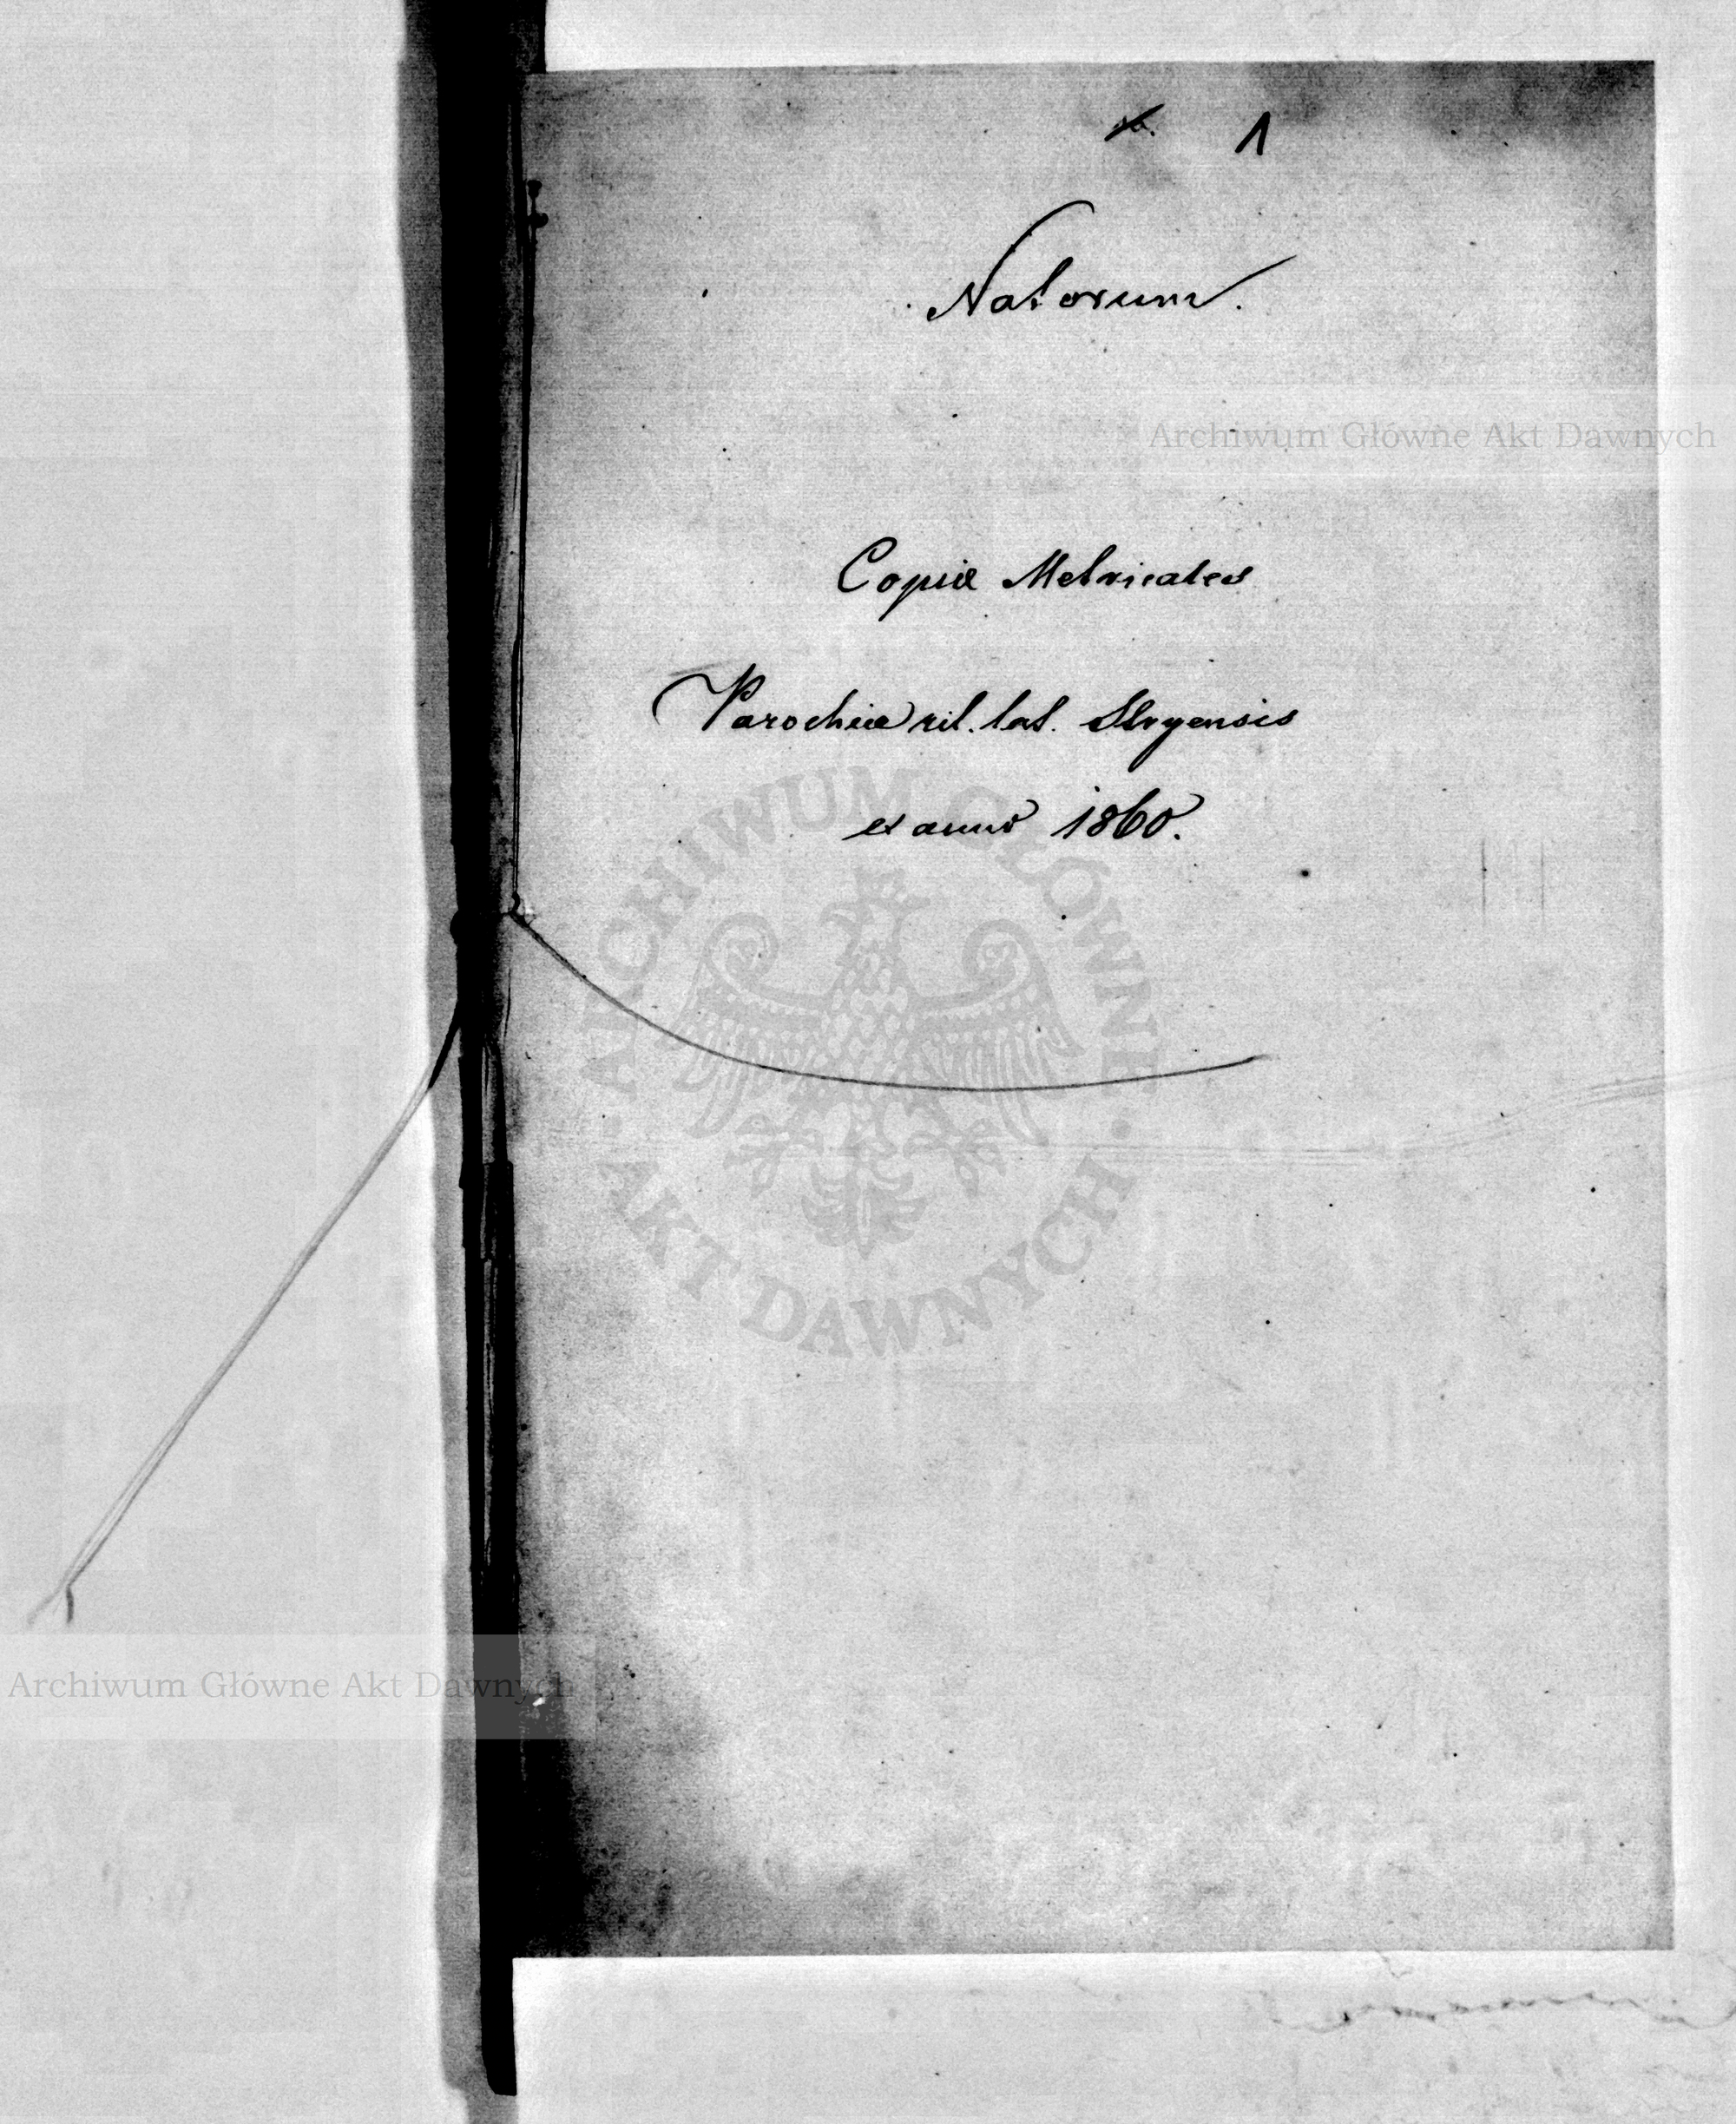 1
Natorum.
Archiwum Główne Akt Dawnych
Copiæ Metricales
Parochiæ rit. lat. Stryensis
ex anno 1860.
ARCHIWUM GŁÓWNE
AKT DAWNYCH
Archiwum Główne Akt Dawnych